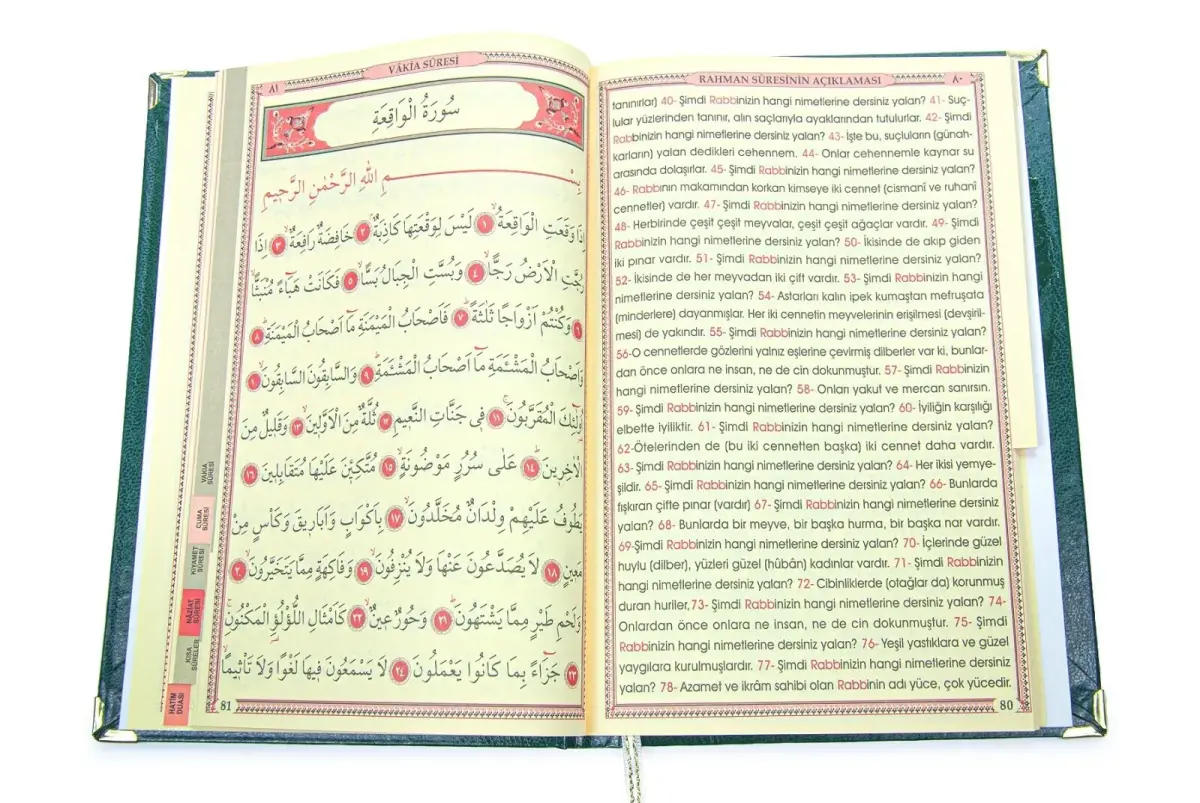 RAHMAN SÛRESİNİN AÇIKLAMASI
٨٠
tanınırlar) 40- Şimdi Rabbinizin hangi nimetlerine dersiniz yalan? 41- Suç-
lular yüzlerinden tanınır, alın saçlarıyla ayaklarından tutulurlar. 42- Şimdi
Rabbinizin hangi nimetlerine dersiniz yalan? 43- İşte bu, suçluların (günah-
karların) yalan dedikleri cehennem. 44- Onlar cehennemle kaynar su
arasında dolaşırlar. 45- Şimdi Rabbinizin hangi nimetlerine dersiniz yalan?
46- Rabbının makamından korkan kimseye iki cennet (cismanî ve ruhanî
cennetler) vardır. 47- Şimdi Rabbinizin hangi nimetlerine dersiniz yalan?
48- Herbirinde çeşit çeşit meyvalar, çeşit çeşit ağaçlar vardır. 49- Şimdi
Rabbinizin hangi nimetlerine dersiniz yalan? 50- İkisinde de akıp giden
iki pınar vardır. 51- Şimdi Rabbinizin hangi nimetlerine dersiniz yalan?
52- İkisinde de her meyvadan iki çift vardır. 53- Şimdi Rabbinizin hangi
nimetlerine dersiniz yalan? 54- Astarları kalın ipek kumaştan mefruşata
(minderlere) dayanmışlar. Her iki cennetin meyvelerinin erişilmesi (devşiril-
mesi) de yakındır. 55- Şimdi Rabbinizin hangi nimetlerine dersiniz yalan?
56-O cennetlerde gözlerini yalnız eşlerine çevirmiş dilberler var ki, bunlar-
dan önce onlara ne insan, ne de cin dokunmuştur. 57- Şimdi Rabbinizin
hangi nimetlerine dersiniz yalan? 58- Onları yakut ve mercan sanırsın.
59- Şimdi Rabbinizin hangi nimetlerine dersiniz yalan? 60- İyiliğin karşılığı
elbette iyiliktir. 61- Şimdi Rabbinizin hangi nimetlerine dersiniz yalan?
62-Ötelerinden de (bu iki cennetten başka) iki cennet daha vardır.
63- Şimdi Rabbinizin hangi nimetlerine dersiniz yalan? 64- Her ikisi yemye-
şildir. 65- Şimdi Rabbinizin hangi nimetlerine dersiniz yalan? 66- Bunlarda
fışkıran çifte pınar (vardır) 67- Şimdi Rabbinizin hangi nimetlerine dersiniz
yalan? 68- Bunlarda bir meyve, bir başka hurma, bir başka nar vardır.
69-Şimdi Rabbinizin hangi nimetlerine dersiniz yalan? 70- İçlerinde güzel
huylu (dilber), yüzleri güzel (hûbân) kadınlar vardır. 71- Şimdi Rabbinizin
hangi nimetlerine dersiniz yalan? 72- Cibinliklerde (otağlar da) korunmuş
duran huriler,73- Şimdi Rabbinizin hangi nimetlerine dersiniz yalan? 74-
Onlardan önce onlara ne insan, ne de cin dokunmuştur. 75- Şimdi
Rabbinizin hangi nimetlerine dersiniz yalan? 76- Yeşil yastıklara ve güzel
yaygılara kurulmuşlardır. 77- Şimdi Rabbinizin hangi nimetlerine dersiniz
yalan? 78- Azamet ve ikrâm sahibi olan Rabbinin adı yüce, çok yücedir.
80
VÂKIA SÛRESİ
٨١
سُورَةُ الْوَاقِعَةِ
بِسْمِ اللّٰهِ الرَّحْمٰنِ الرَّحٖيمِ
اِذَا وَقَعَتِ الْوَاقِعَةُۙ ١ لَيْسَ لِوَقْعَتِهَا كَاذِبَةٌۢ ٢ خَافِضَةٌ رَافِعَةٌۙ ٣ اِذَا
رُجَّتِ الْاَرْضُ رَجًّاۙ ٤ وَبُسَّتِ الْجِبَالُ بَسًّاۙ ٥ فَكَانَتْ هَبَٓاءً مُنْبَثًّاۙ
٦ وَكُنْتُمْ اَزْوَاجًا ثَلٰثَةًۜ ٧ فَاَصْحَابُ الْمَيْمَنَةِ مَٓا اَصْحَابُ الْمَيْمَنَةِۜ ٨
وَاَصْحَابُ الْمَشْـَٔمَةِ مَٓا اَصْحَابُ الْمَشْـَٔمَةِۜ ٩ وَالسَّابِقُونَ السَّابِقُونَۙ ١٠
اُو۬لٰٓئِكَ الْمُقَرَّبُونَۚ ١١ فٖى جَنَّاتِ النَّعٖيمِ ١٢ ثُلَّةٌ مِنَ الْاَوَّلٖينَۙ ١٣ وَقَلٖيلٌ مِنَ
الْاٰخِرٖينَۜ ١٤ عَلٰى سُرُرٍ مَوْضُونَةٍۙ ١٥ مُتَّكِـٖٔينَ عَلَيْهَا مُتَقَابِلٖينَ ١٦
يَطُوفُ عَلَيْهِمْ وِلْدَانٌ مُخَلَّدُونَۙ ١٧ بِاَكْوَابٍ وَاَبَارٖيقَ وَكَاْسٍ مِنْ
مَعٖينٍۙ ١٨ لَا يُصَدَّعُونَ عَنْهَا وَلَا يُنْزِفُونَۙ ١٩ وَفَاكِهَةٍ مِمَّا يَتَخَيَّرُونَۙ ٢٠
وَلَحْمِ طَيْرٍ مِمَّا يَشْتَهُونَۜ ٢١ وَحُورٌ عٖينٌۙ ٢٢ كَاَمْثَالِ اللُّؤْلُؤِ الْمَكْنُونِۚ
٢٣ جَزَٓاءً بِمَا كَانُوا يَعْمَلُونَ ٢٤ لَا يَسْمَعُونَ فٖيهَا لَغْوًا وَلَا تَاْثٖيمًاۙ
81
VAKIA
SÛRESİ
CUMA
SÛRESİ
KIYAMET
SÛRESİ
NÂZİAT
SÛRESİ
KISA
SÛRELER
HATİM
DUASI